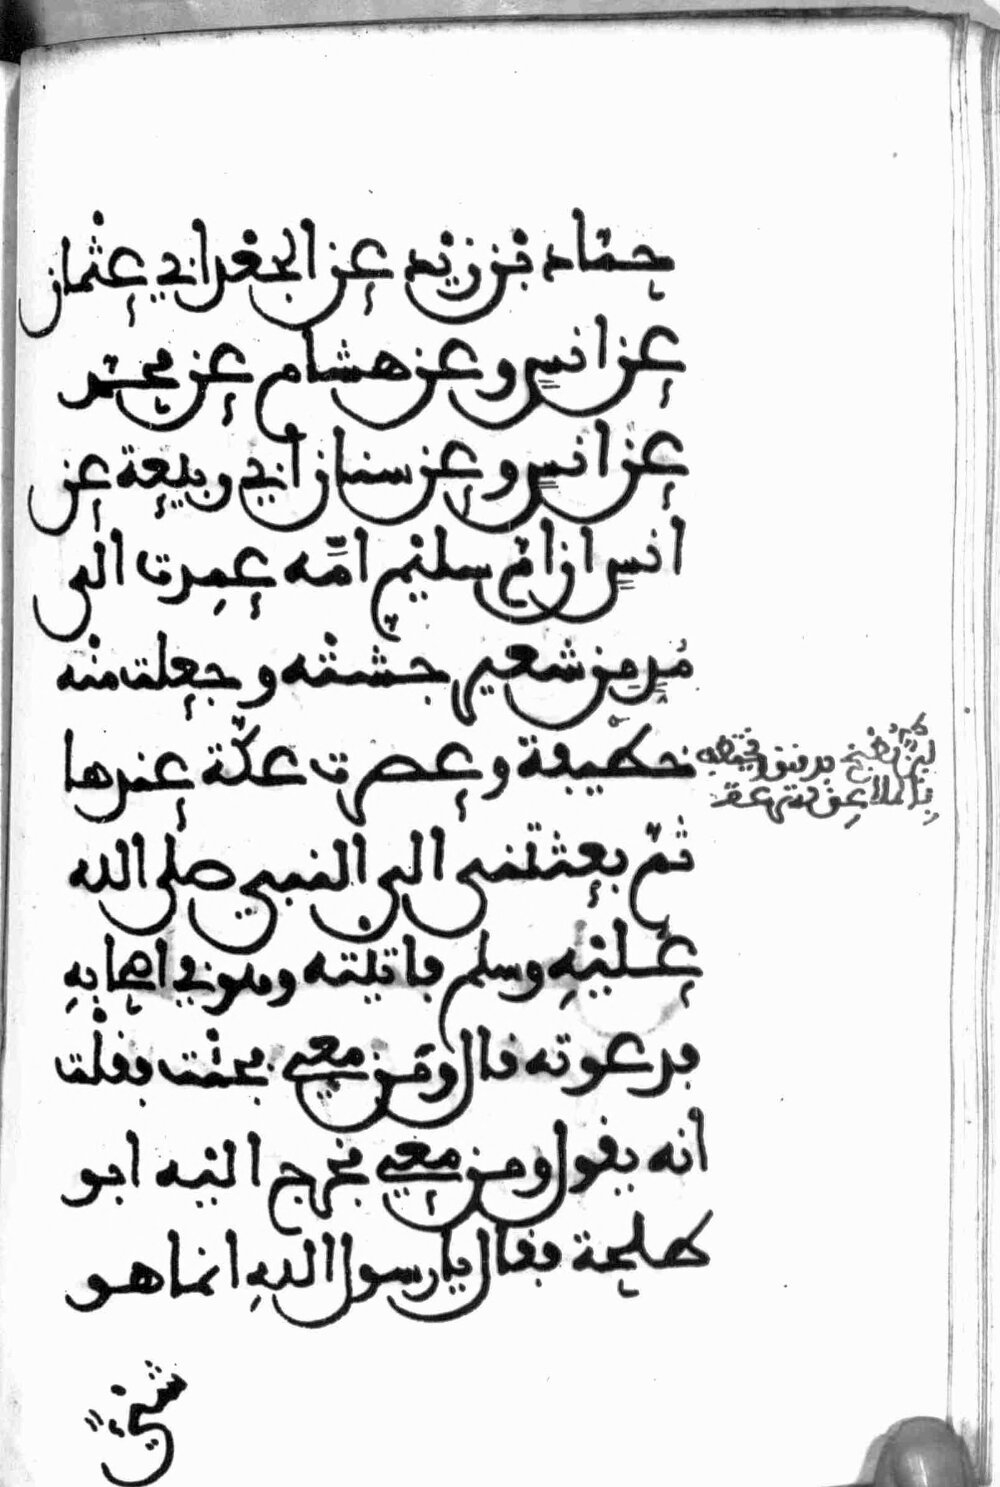 حماد بن زيد عن الجعد ابي عثمان
عن انس وعن هشام عن محمد
عن انس وعن سنان ابي ربيعة عن
انس ان ام سليم امه عمدت الى
مد من شعير جشته وجعلت منه
خطيفة وعصرت عكة عندها
ثم بعثتني الى النبي صلى الله
عليه وسلم فاتيته وهو في اصحابه
فدعوته قال ومن معي فجئت فقلت
انه يقول ومن معي فخرج اليه ابو
طلحة فقال يا رسول الله انما هو
شيء